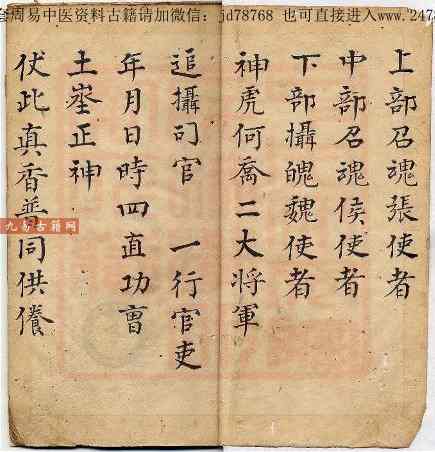 全周易中医资料古籍请加微信：jd78768 也可直接进入www.247
上部召魂張使者
中部召魂侯使者
下部攝魄魏使者
神虎何喬二大将軍
追攝司官 一行官吏
年月日時四直功曹
土埊正神
伏此真香普同供養
九易古籍网